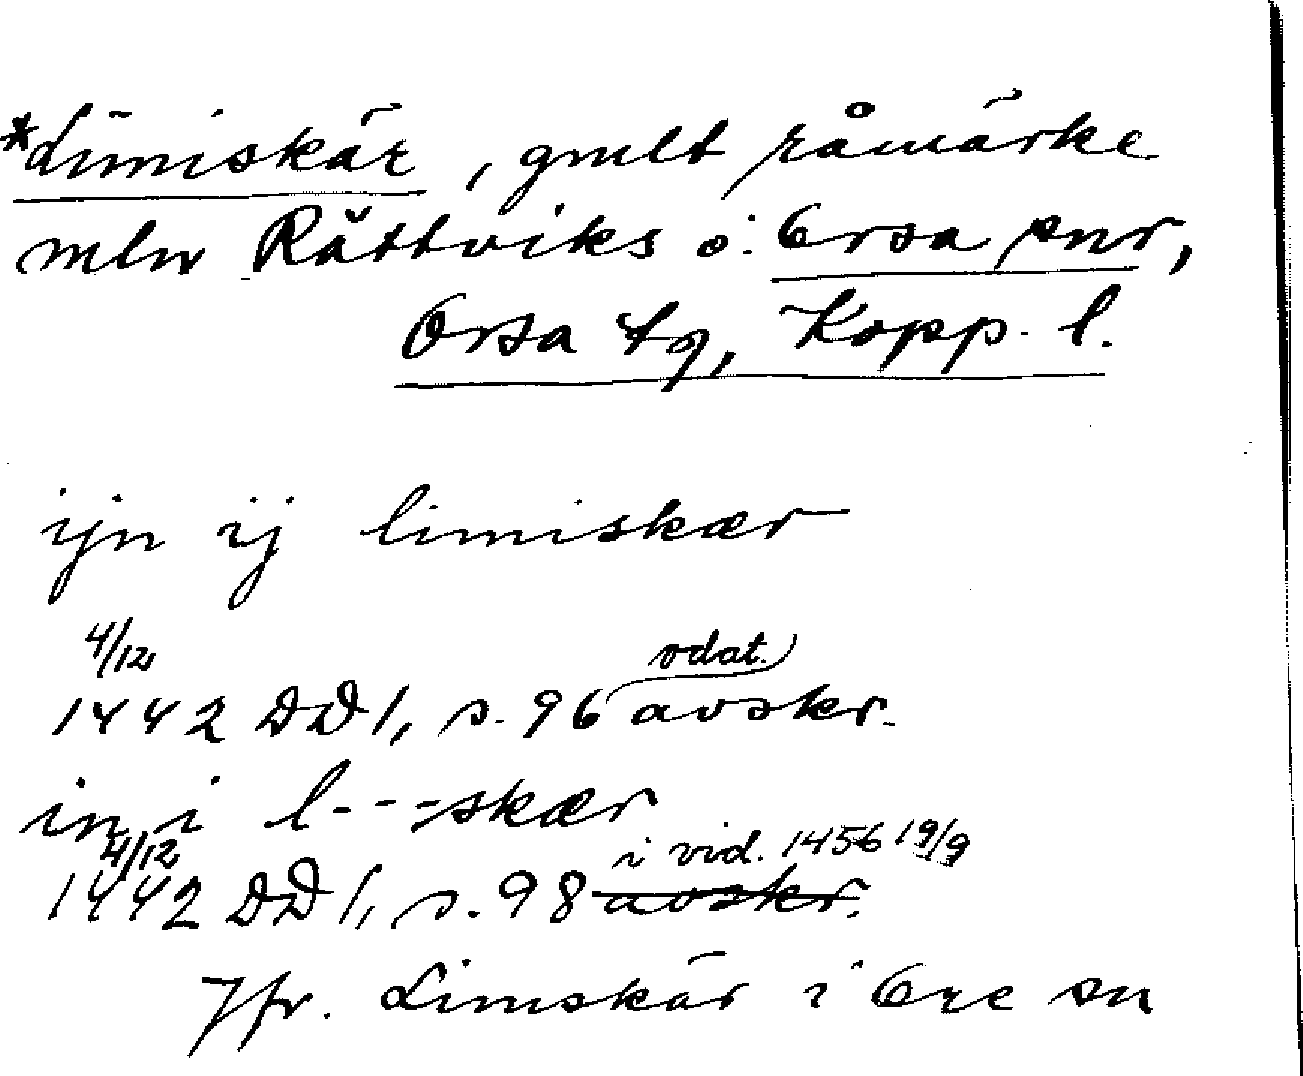 *Limiskär, gmlt råmärke
mln Rättviks o. Orsa snr,
Orsa tg, Kopp. l.
ijn ij limiskær
4/12 odat.
1442 DD 1, s. 96 avskr.
in i l---skær
4/12 i vid. 1456 19/9
1442 DD 1, s. 98 avskr.
Jfr. Limskär i Ore sn